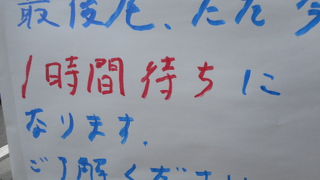 最後尾、ただ今
1時間待ちに
なります。
ご了解ください